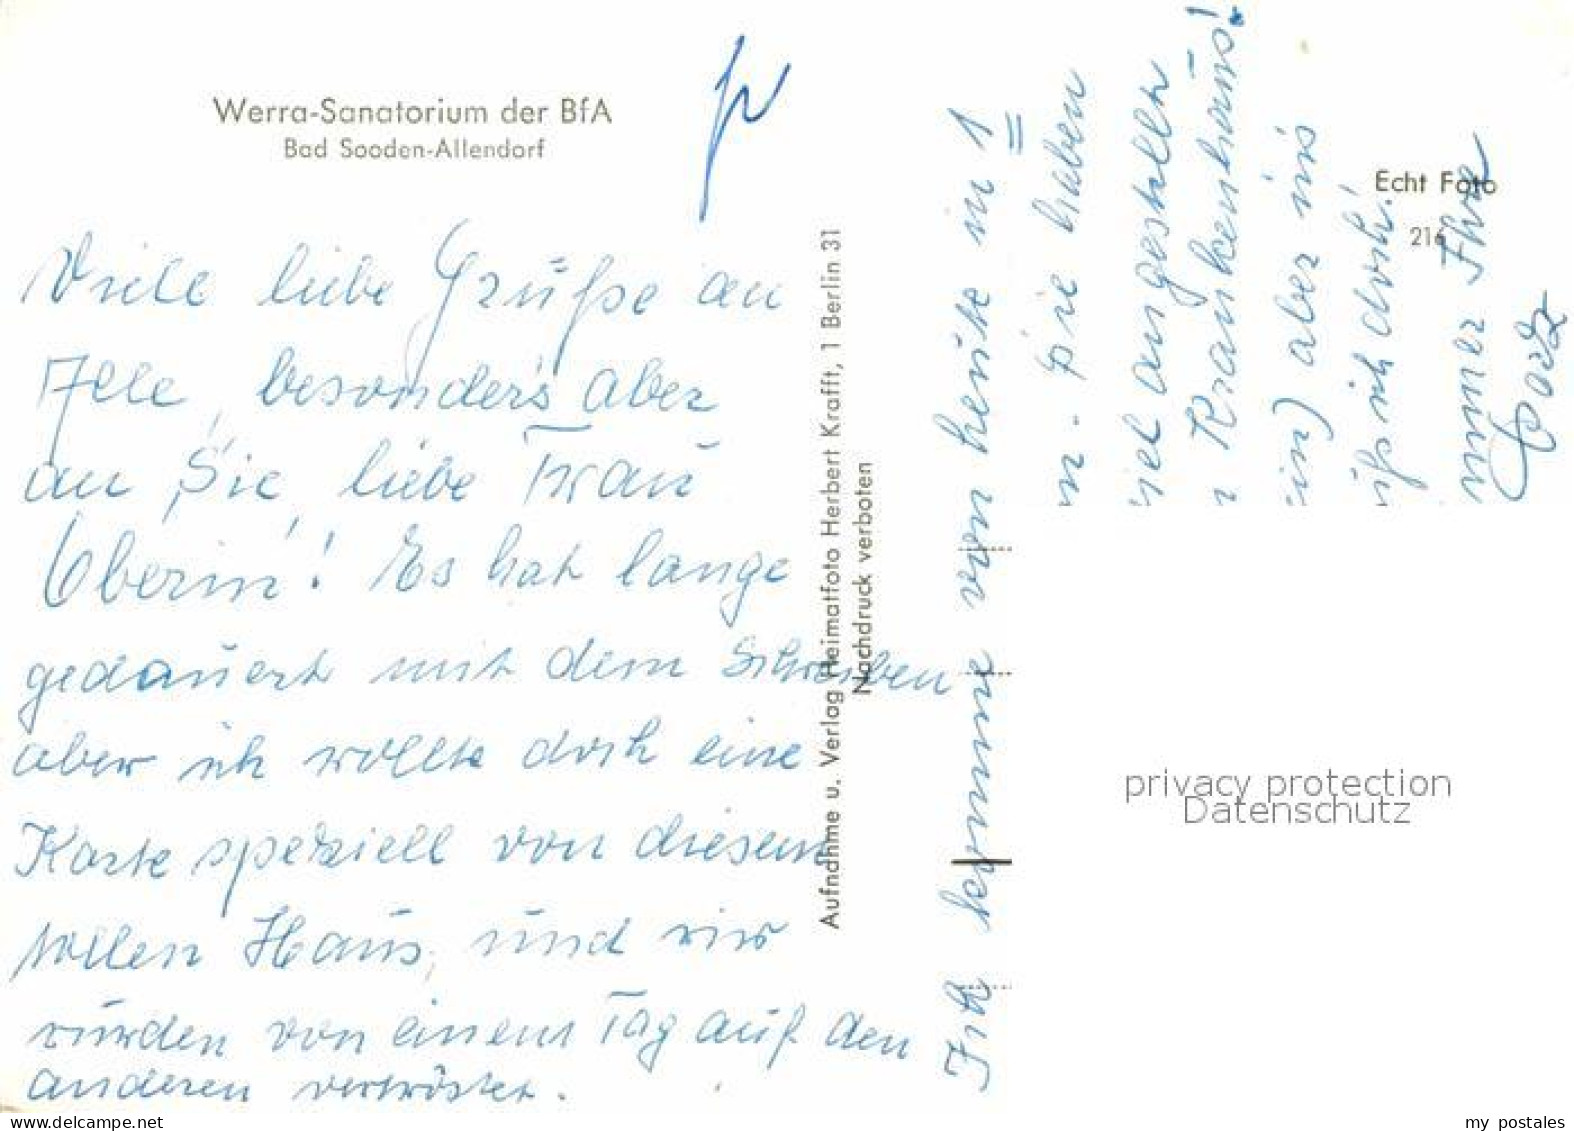 Werra-Sanatorium der BfA
Bad Sooden-Allendorf
Viele liebe Grüße an
Alle, besonders aber
an „Sie, liebe Frau
Oberin"! Es hat lange
gedauert mit dem Schreiben
aber ich wollte doch eine
Karte speziell von diesem
tollen Haus, und wir
wurden von einem Tag auf den
anderen vertröstet.
Aufnahme u. Verlag Heimatfoto Herbert Krafft, 1 Berlin 31
Nachdruck verboten
Ich komme von heute in 1
n. Sie haben
iel angestellt
r Krankenhaus!
in) aber ins
ß ich doch!
immer Ihre
Echt Foto
216
privacy protection
Datenschutz
www.delcampe.net
my_postales